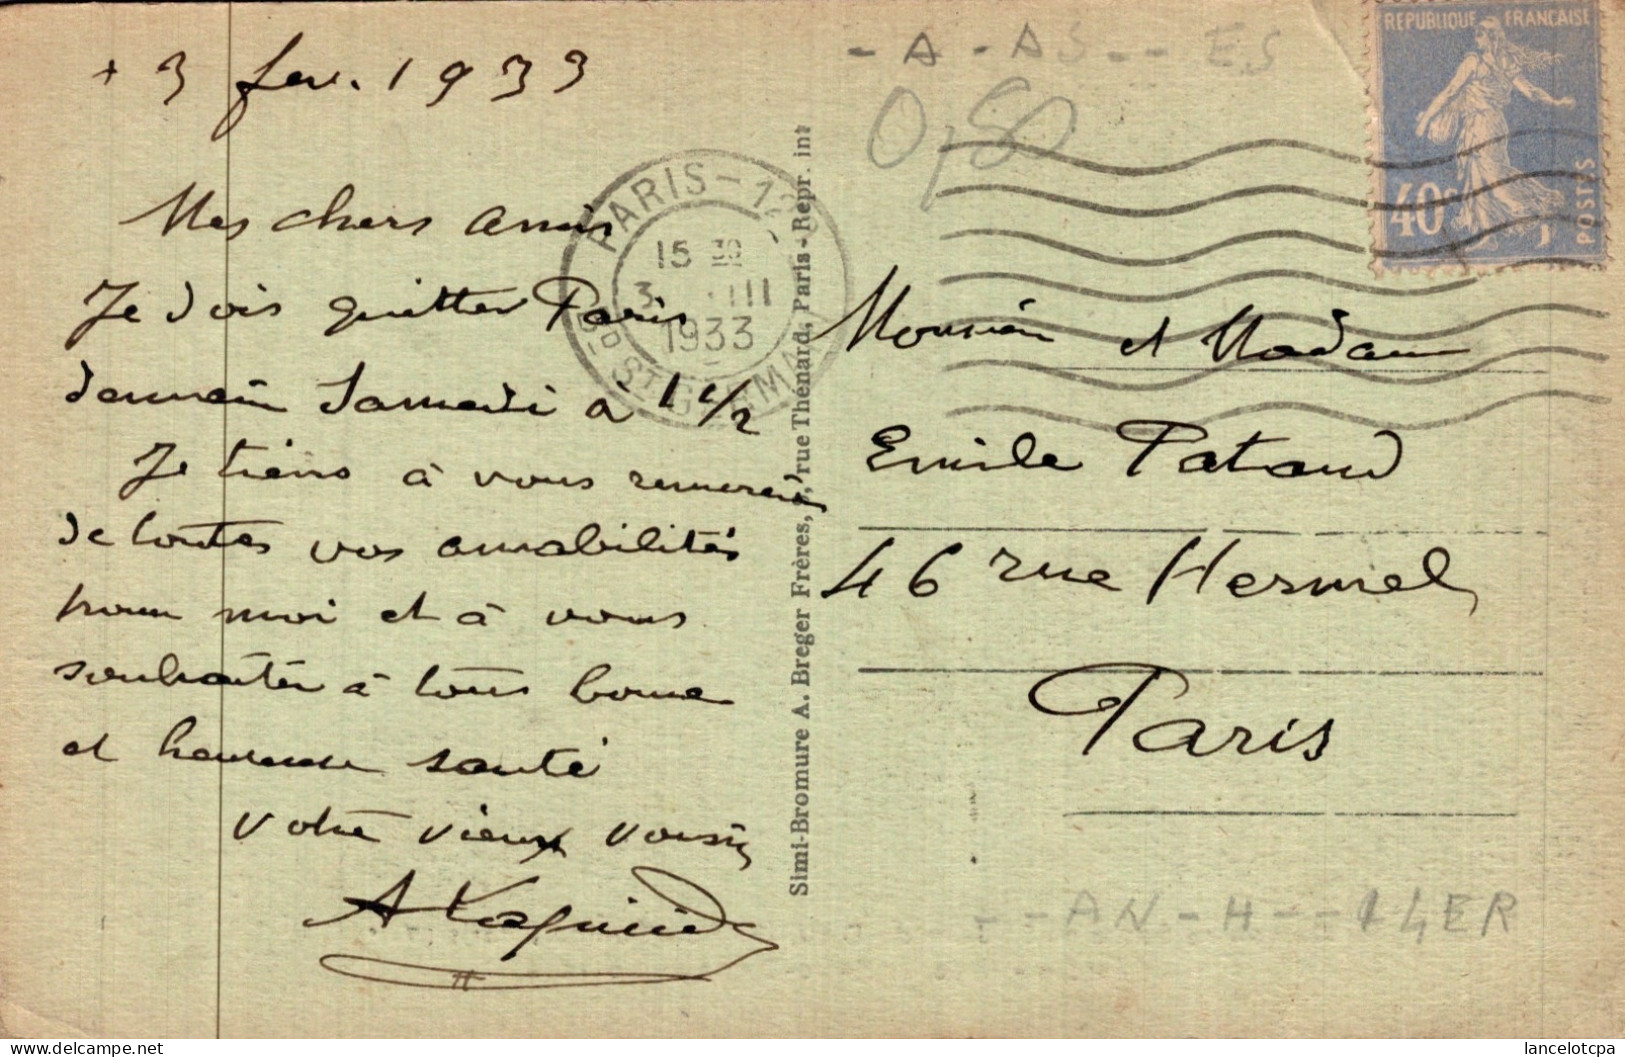 + 3 fev. 1933
Mes chers amis
Je dois quitter Paris
demain Samedi à 1 1/2
Je tiens à vous remercier
de toutes vos amabilités
pour moi et à vous
souhaiter à tous bonne
et heureuse santé
votre vieux voisin
PARIS - 12
15 H
3 III
1933
BD ST GERMAIN
Simi-Bromure A. Breger Frères, 9, rue Thénard, Paris - Repr. int
- A - AS - - ES
0,50
REPUBLIQUE FRANÇAISE
40c
POSTES
Monsieur et Madame
Emile Pataud
46 rue Hermel
Paris
- - AN - H - - 14ER
lancelotcpa